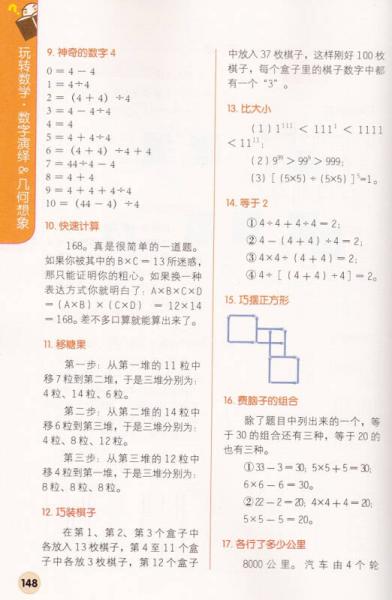 玩转数学·数字演绎&几何想象
9. 神奇的数字 4
0 = 4 － 4
1 = 4÷4
2 = （4 + 4）÷4
3 = 4 － 4÷4
4 = 4
5 = 4 + 4÷4
6 = （4 + 4）÷4 + 4
7 = 44÷4 － 4
8 = 4 + 4
9 = 4 + 4 + 4÷4
10 = （44 － 4）÷4
10. 快速计算
168。真是很简单的一道题。
如果你被其中的 B×C = 13 所迷惑，
那只能证明你的粗心。如果换一种
表达方式你就明白了：A×B×C×D
=（A×B）×（C×D） = 12×14
= 168。差不多口算就能算出来了。
11. 移糖果
第一步：从第一堆的 11 粒中
移 7 粒到第二堆，于是三堆分别为：
4 粒、14 粒、6 粒。
第二步：从第二堆的 14 粒中
移 6 粒到第三堆，于是三堆分别为：
4 粒、8 粒、12 粒。
第三步：从第三堆的 12 粒中
移 4 粒到第一堆，于是三堆分别为：
8 粒、8 粒、8 粒。
12. 巧装棋子
在第 1、第 2、第 3 个盒子中
各放入 13 枚棋子，第 4 至 11 个盒
子中各放 3 枚棋子，第 12 个盒子
148
中放入 37 枚棋子，这样刚好 100 枚
棋子，每个盒子里的棋子数字中都
有一个“3”。
13. 比大小
（1）1¹¹¹ < 111¹ < 1111
< 11¹¹；
（2）9⁹⁹ > 99⁹ > 999；
（3）[（5×5）÷（5×5）]⁵=1。
14. 等于 2
①4÷4 + 4÷4 = 2；
②4 －（4 + 4）÷4 = 2；
③4×4÷（4 + 4）= 2；
④4÷[（4 + 4）÷4] = 2。
15. 巧摆正方形
16. 费脑子的组合
除了题目中列出来的一个，等
于 30 的组合还有三种，等于 20 的
也有三种。
①33 － 3 = 30；5×5 + 5 = 30；
6×6 － 6 = 30。
②22 － 2 = 20；4×4 + 4 = 20；
5×5 － 5 = 20。
17. 各行了多少公里
8000 公里。汽车由 4 个轮